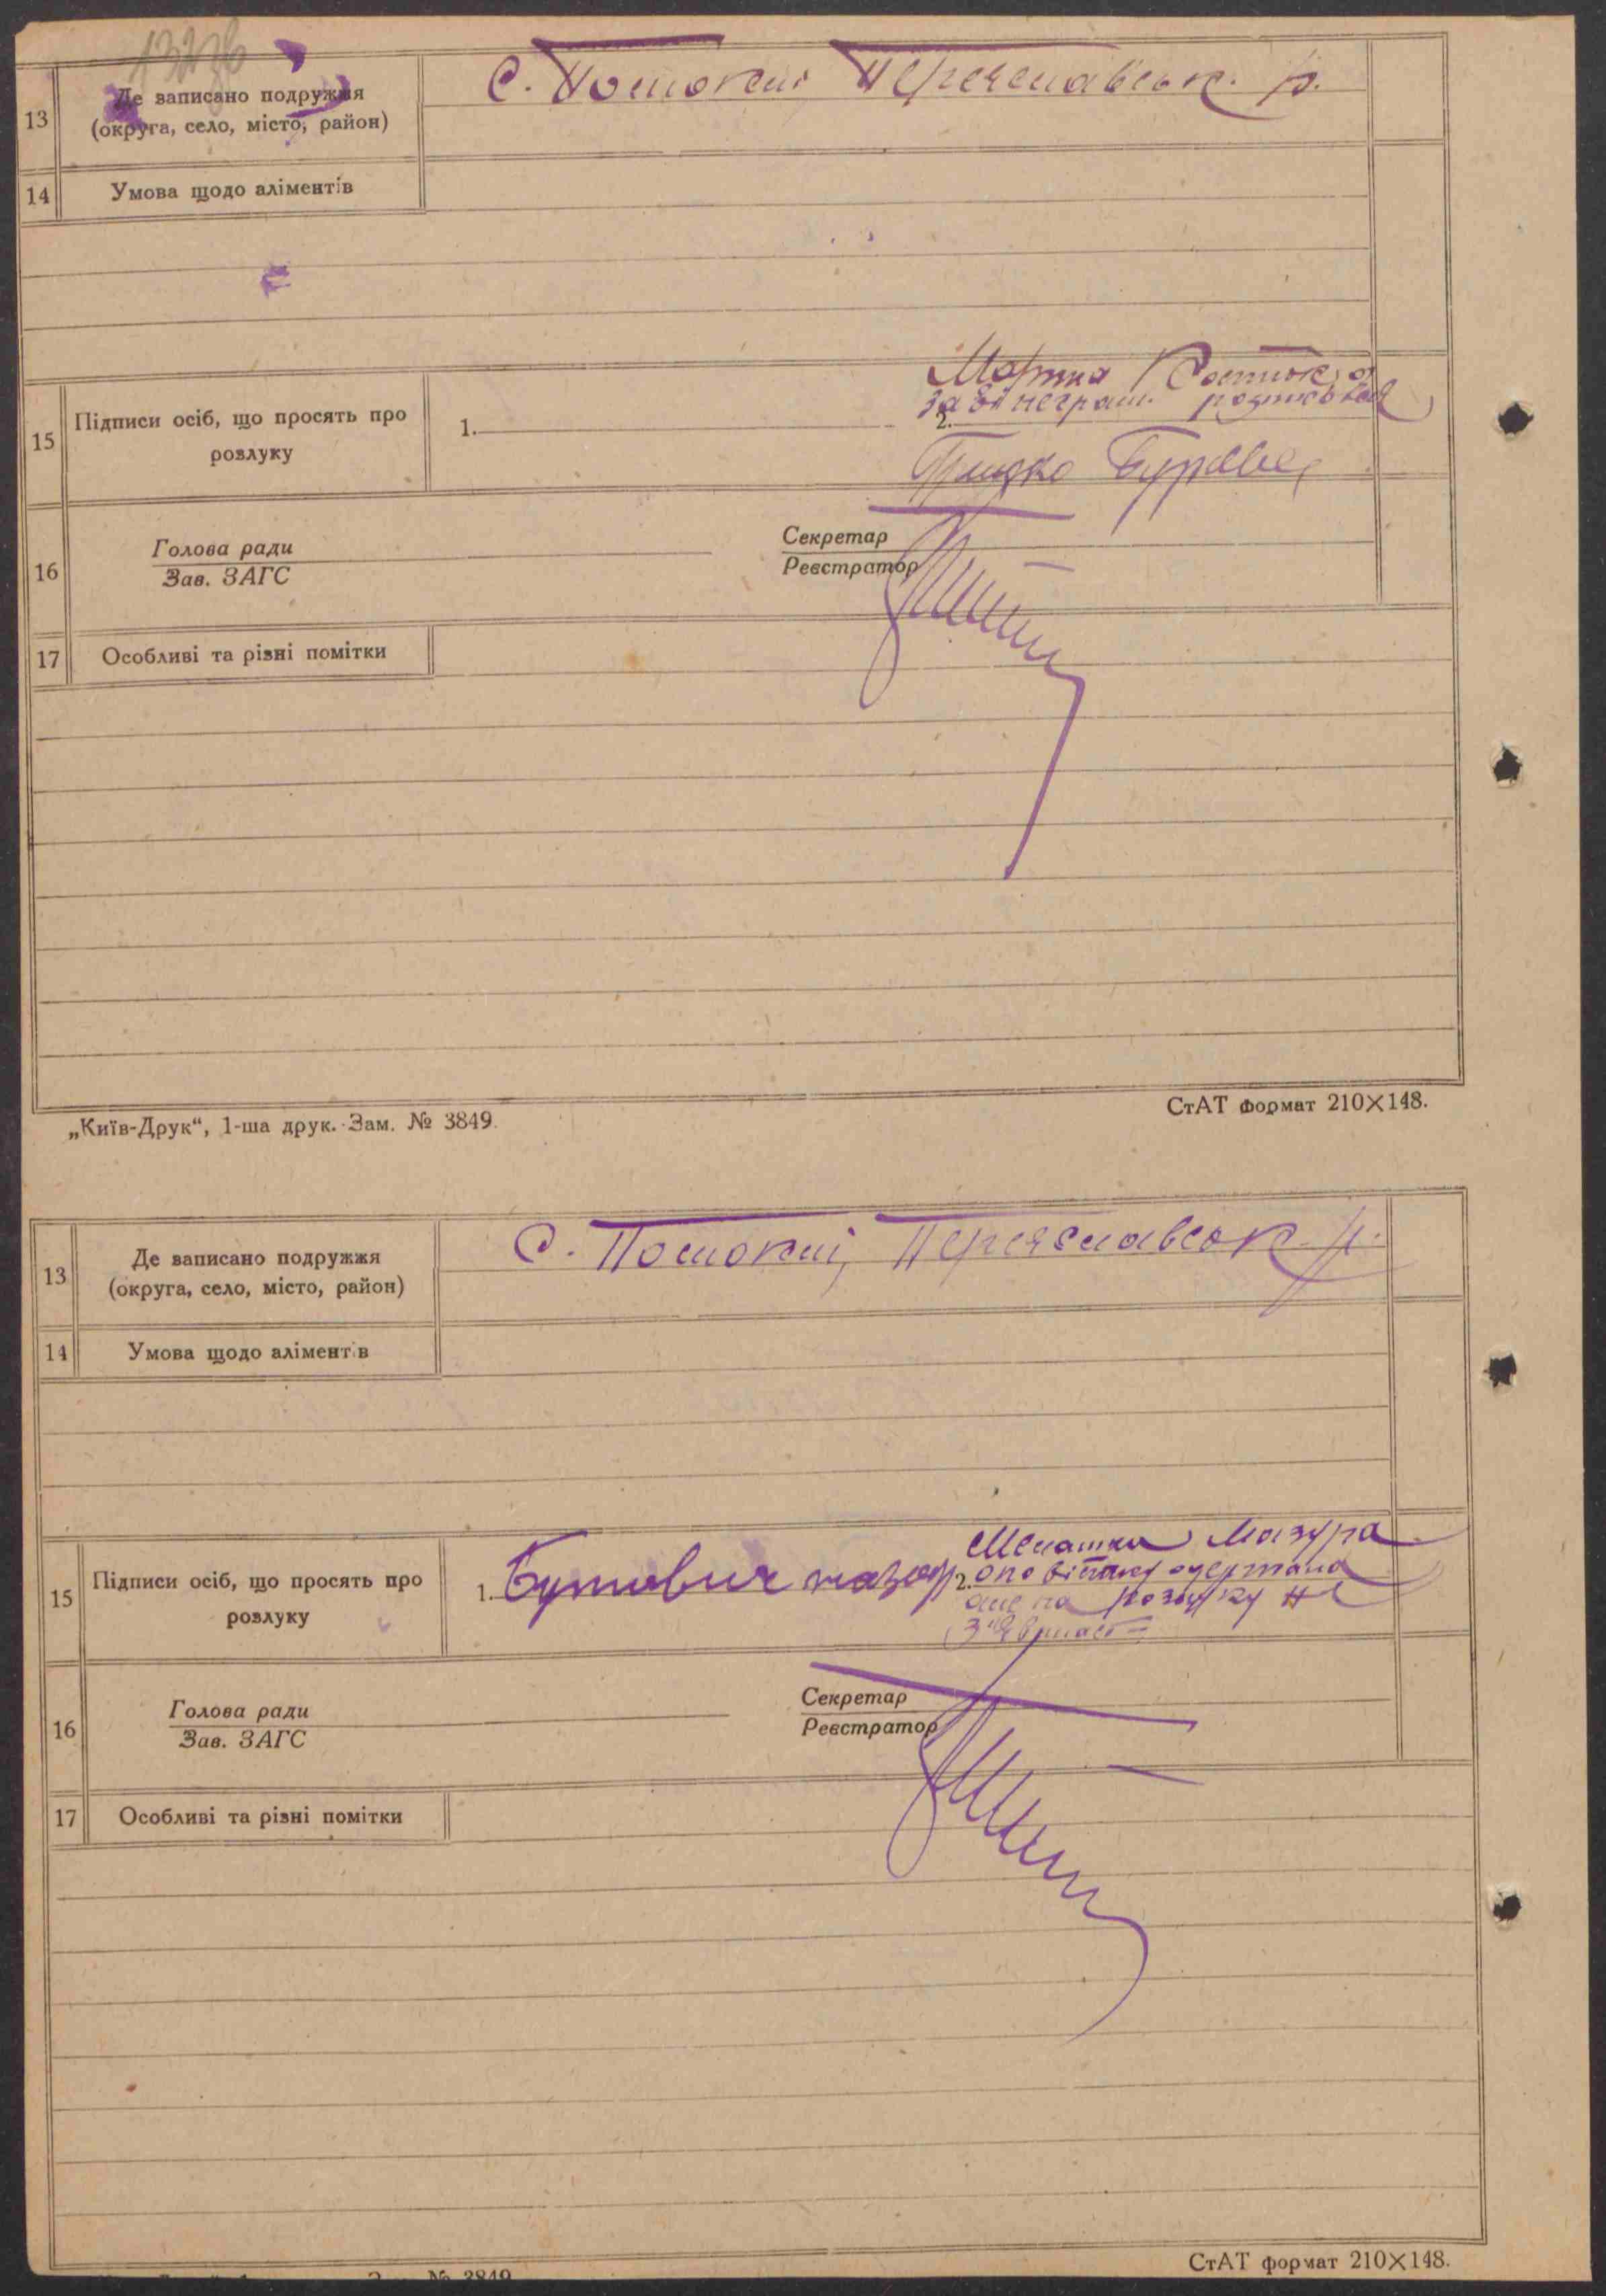 13
Де записано подружжя
(округа, село, місто, район)
С. Потокни Переяславськ. р.
14
Умова щодо аліментів
Мотря Костюк, а
за її неграм. розписався
15
Підписи осіб, що просять про
розлуку
1.
2.
Грицко
16
Голова ради
Зав. ЗАГС
Секретар
Реєстратор
17
Особливі та різні помітки
„Київ-Друк“, 1-ша друк. Зам. № 3849.
СтАТ формат 210×148.
13
Де записано подружжя
(округа, село, місто, район)
С. Потокни, Переяславськ р.
14
Умова щодо аліментів
Мелашка Мазура
15
Підписи осіб, що просять про
розлуку
1. Бутович назар
2. оповістку одержала
але на розлуку не
з'явилась
16
Голова ради
Зав. ЗАГС
Секретар
Реєстратор
17
Особливі та різні помітки
№ 3849
СтАТ формат 210×148.